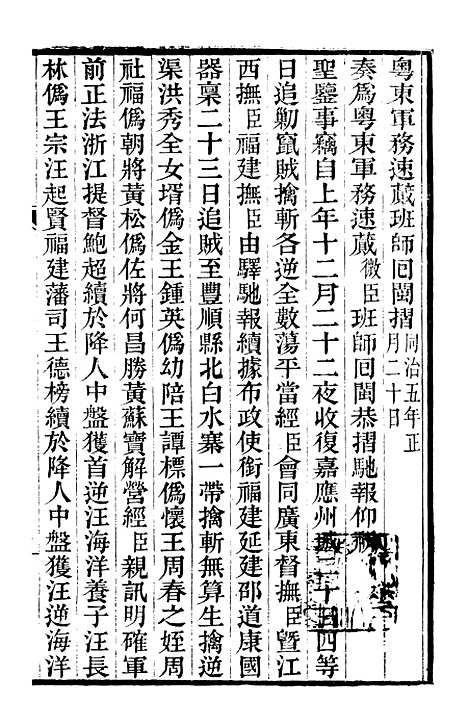 粵東軍務速蕆班師回閩摺同治五年正月二十日
奏爲粵東軍務速蕆微臣班師回閩恭摺馳報仰
聖鑒事竊自上年十二月二十二夜收復嘉應州二十四等
日追勦竄賊擒斬各逆全數蕩平當經臣會同廣東督撫臣曁江
西撫臣福建撫臣由驛馳報續據布政使銜福建延建邵道康國
器稟二十三日追賊至豐順縣北白水寨一帶擒斬無算生擒逆
渠洪秀全女壻僞金王鍾英僞幼陪王譚標僞懷王周春之姪周
社福僞朝將黃松僞佐將何昌勝黃蘇寶解營經臣親訊明確軍
前正法浙江提督鮑超續於降人中盤獲首逆汪海洋養子汪長
林僞王宗汪起賢福建藩司王德榜續於降人中盤獲汪逆海洋